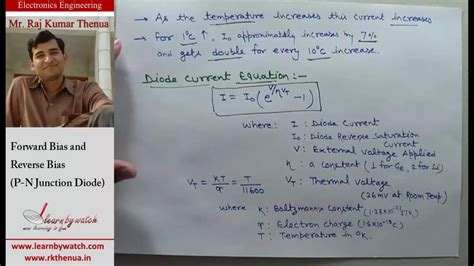 Electronics Engineering
Mr. Raj Kumar Thenua
Forward Bias and
Reverse Bias
(P-N Junction Diode)
learnbywatch
www.learnbywatch.com
www.rkthenua.in
→ As the temperature increases this current increases
→ For 1°C ↑, I₀ approximately increases by 7%
and gets double for every 10°C increase.
Diode Current Equation :-
I = I₀ (e^V/ηV_T − 1)
where: I : Diode Current
I₀ : Diode Reverse Saturation
Current
V : External Voltage Applied
η : a Constant (1 for Ge, 2 for Si)
V_T = kT/q = T/11600
V_T : Thermal Voltage
(26mV at Room Temp)
where K : Boltzmann's Constant (1.38×10⁻²³ J/K)
q : Electron charge (1.6×10⁻¹⁹ C)
T : Temperature in °K.